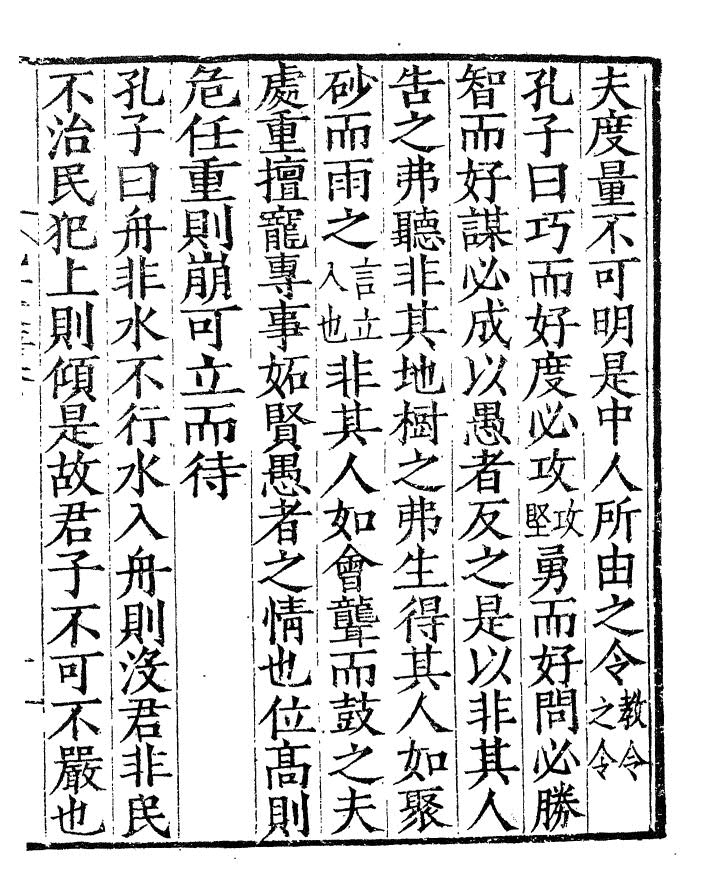 夫度量不可明是中人所由之令教令之令
孔子曰巧而好度必攻攻堅勇而好問必勝
智而好謀必成以愚者反之是以非其人
告之弗聽非其地樹之弗生得其人如聚
砂而雨之言立入也非其人如會聾而鼓之夫
處重擅寵專事妬賢愚者之情也位高則
危任重則崩可立而待
孔子曰舟非水不行水入舟則沒君非民
不治民犯上則傾是故君子不可不嚴也